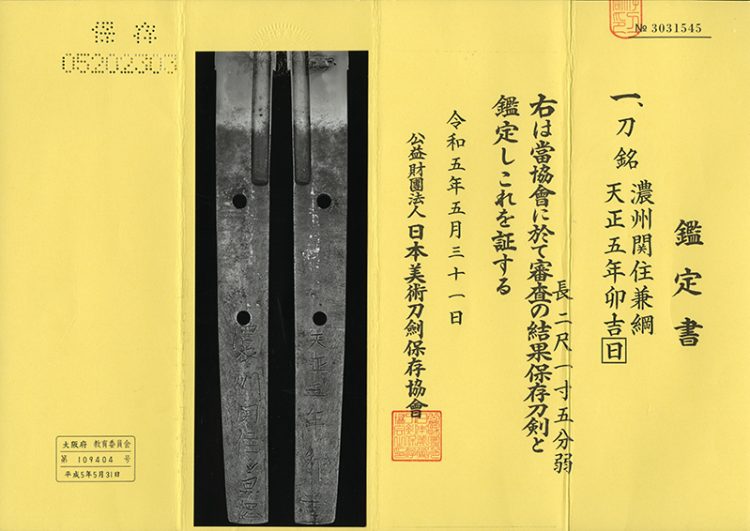 鑑定書
№ 3031545
一、刀 銘 濃州関住兼綱
天正五年卯吉日
長二尺一寸五分弱
右は當協會に於て審査の結果保存刀剣と
鑑定しこれを証する
令和五年五月三十一日
公益財團法人 日本美術刀劍保存協會
保存
05202303
大阪府 教育委員会
第 109404 号
平成5年5月31日
濃州関住兼綱
天正五年卯吉